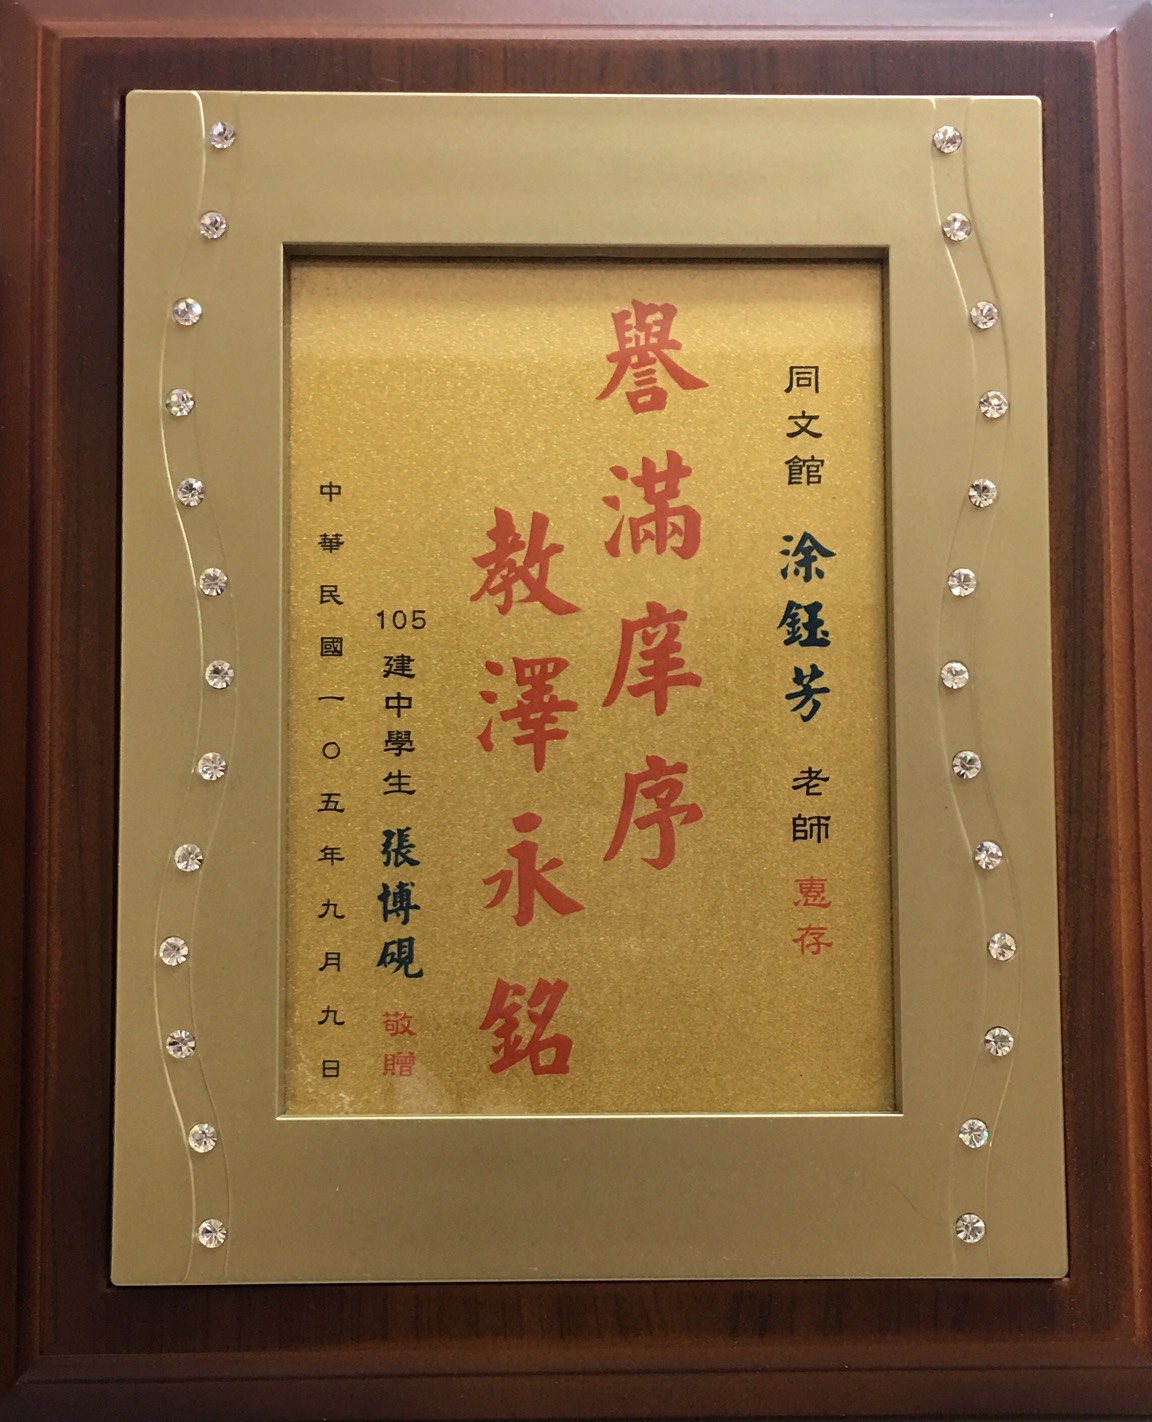 同文館 涂鈺芳 老師 惠存
譽滿庠序
教澤永銘
105建中學生 張博硯 敬贈
中華民國一〇五年九月九日